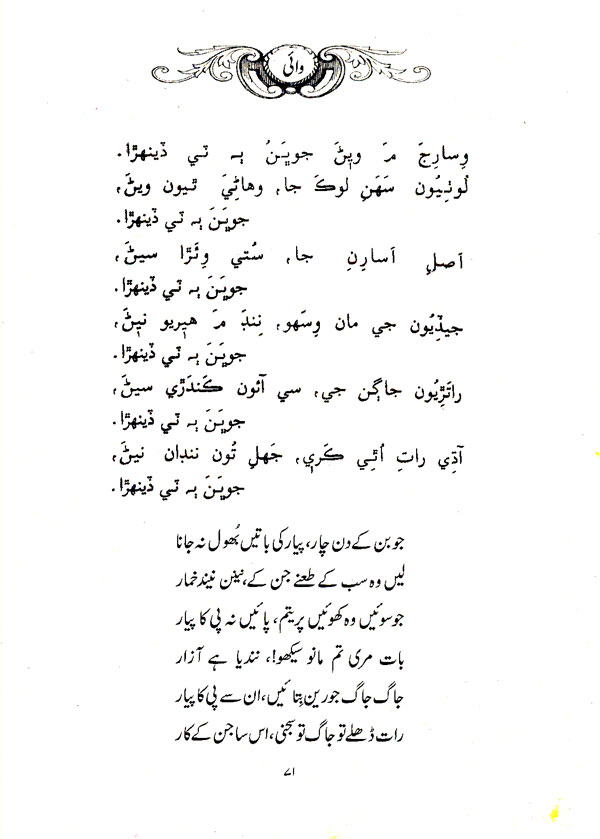 وائي
وِسارِجَ مَ ويڻَ جوڀَنُ ٻہ ٽي ڏينهڙا.
لُوئِيُون سَهَنِ لوڪَ جا، وِهاڻِيَ ٿيون ويڻَ،
جوڀَنَ ٻہ ٽي ڏينهڙا.
اَصلِ اَسارِنِ جا، سُتي وِئَڙا سيڻَ،
جوڀَنَ ٻہ ٽي ڏينهڙا.
جيڏِيُون جي مان وِسَهو، نِنڊَ مَ هيريو نيڻَ،
جوڀَنَ ٻہ ٽي ڏينهڙا.
راتَڙِيُون جاڳن جي، سي آئون ڪَندَڙي سيڻَ،
جوڀَنَ ٻہ ٽي ڏينهڙا.
آڌِي راتِ اُٿِي ڪَري، جَھلِ تُون ننڊان نيڻَ،
جوڀَنَ ٻہ ٽي ڏينهڙا.
جوبن کے دن چار، پیار کی باتیں بُھول نہ جانا
لیں وہ سب کے طعنے جن کے، نینن نیند خمار
جو سوئیں وہ کھوئیں پریتم، پائیں نہ پی کا پیار
بات مری تم مانو سیکھو!، نندیا ہے آزار
جاگ جاگ جو رین بِتائیں، ان سے پی کا پیار
رات ڈھلے تو جاگ تو سجنی، اس ساجن کے کار
۷۱